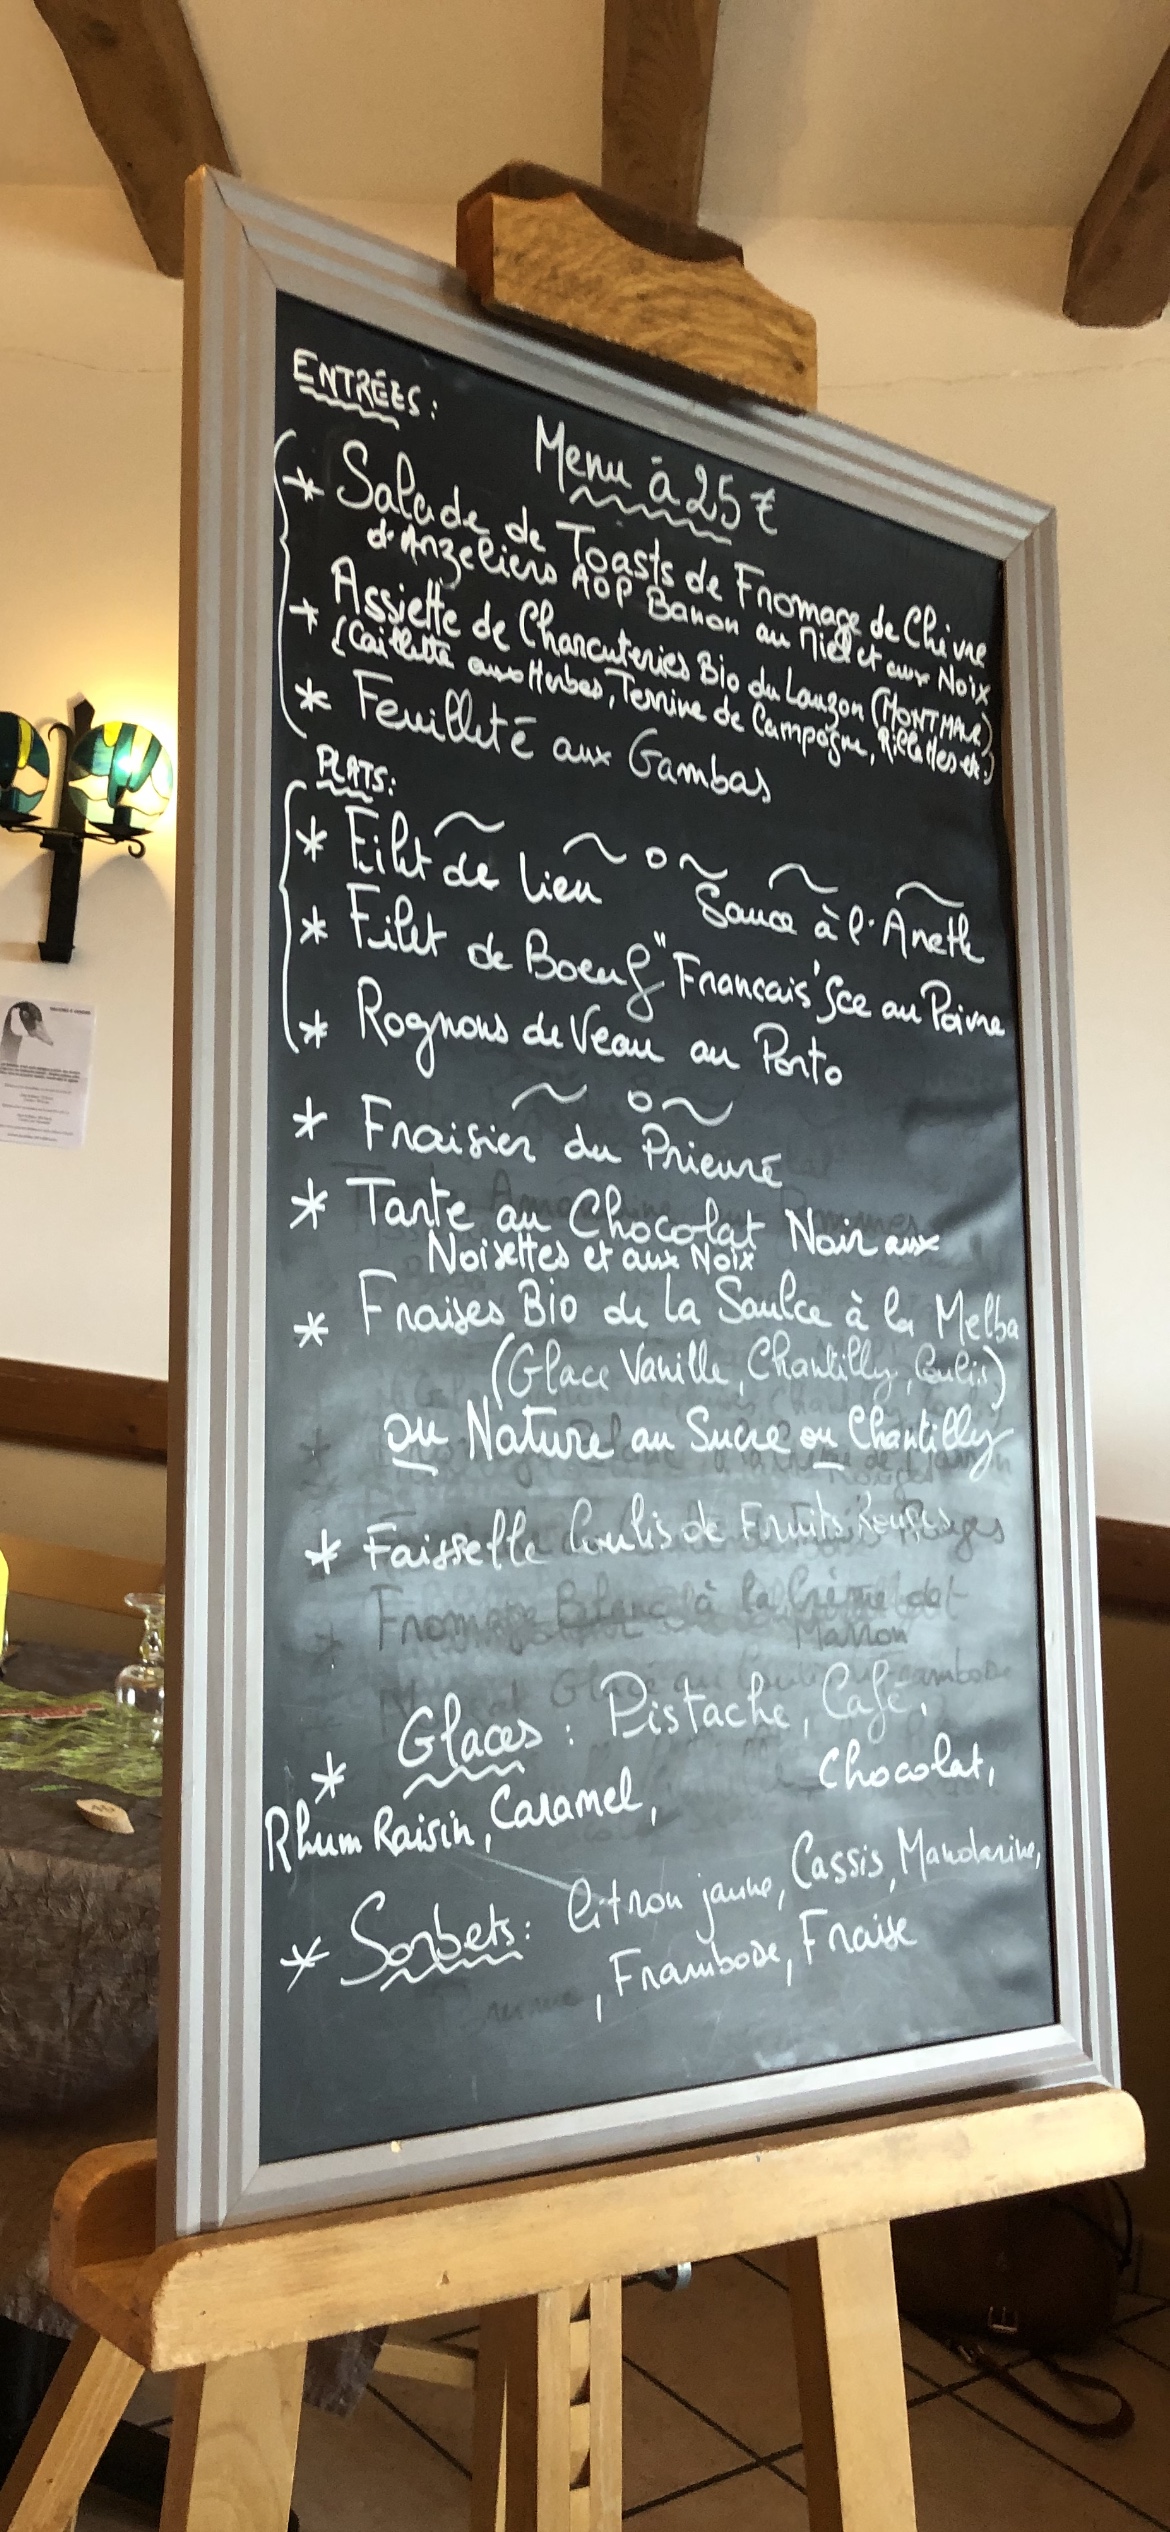 ENTRÉES:
Menu à 25 €
* Salade de Toasts de Fromage de Chèvre
d'Anzeliers AOP Banon au Miel et aux Noix
* Assiette de Charcuteries Bio du Lauzon (MONTMAUR)
(Caillette aux Herbes, Terrine de Campagne, Rillettes etc.)
* Feuilleté aux Gambas
PLATS:
* Filet de Lieu Sauce à l'Aneth
* Filet de Boeuf "Francais" Sce au Poivre
* Rognons de Veau au Porto
* Fraisier du Prieuré
* Tarte au Chocolat Noir aux
Noisettes et aux Noix
* Fraises Bio de La Saulce à la Melba
(Glace Vanille, Chantilly, Coulis)
ou Nature au Sucre ou Chantilly
* Faisselle Coulis de Fruits Rouges
* Glaces: Pistache, Café,
Chocolat,
Rhum Raisin, Caramel,
* Sorbets: Citron jaune, Cassis, Mandarine,
, Framboise, Fraise